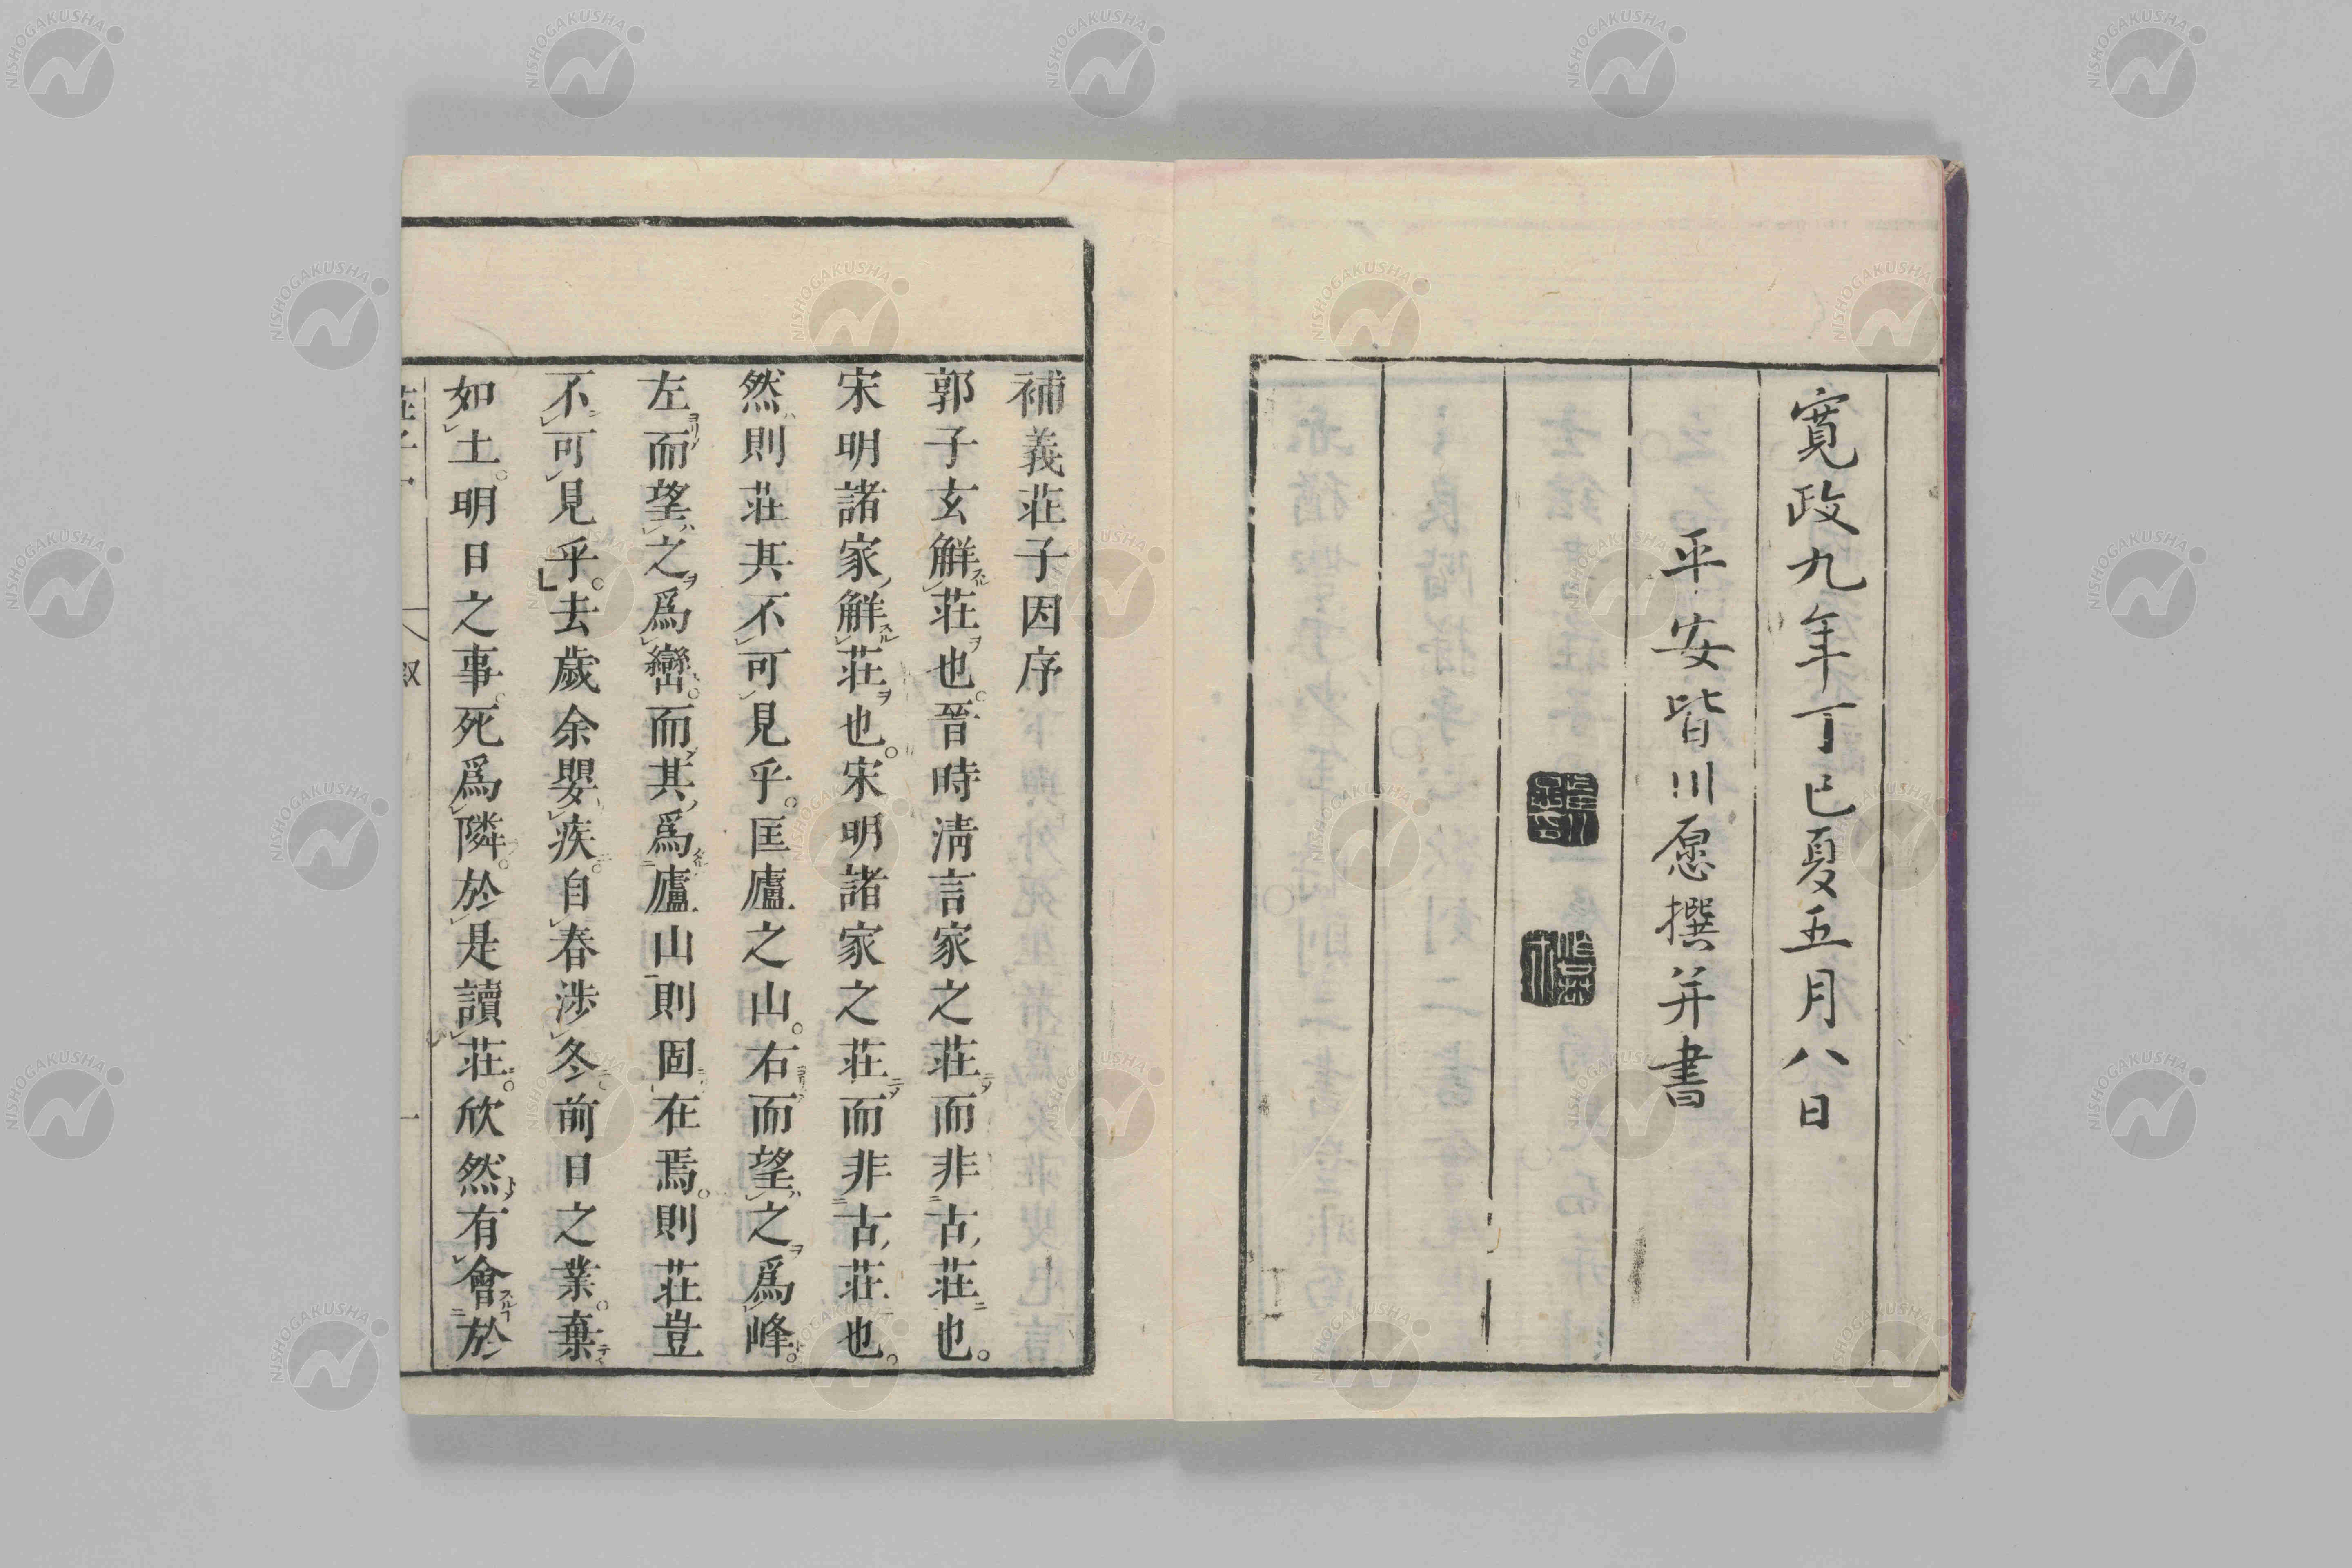 寛政九年丁巳夏五月八日
平安皆川愿撰并書
補義荘子因序
郭子玄解荘也。晉時淸言家之荘而非古荘也。
宋明諸家解荘也。宋明諸家之荘而非古荘也。
然則荘其不可見乎。匡廬之山。右而望之爲峰。
左而望之爲巒。而其爲廬山則固在焉。則荘豈
不可見乎。去歳余嬰疾。自春渉冬前日之業。棄
如土。明日之事。死爲隣。於是讀荘。欣然有會於
NISHOGAKUSHA